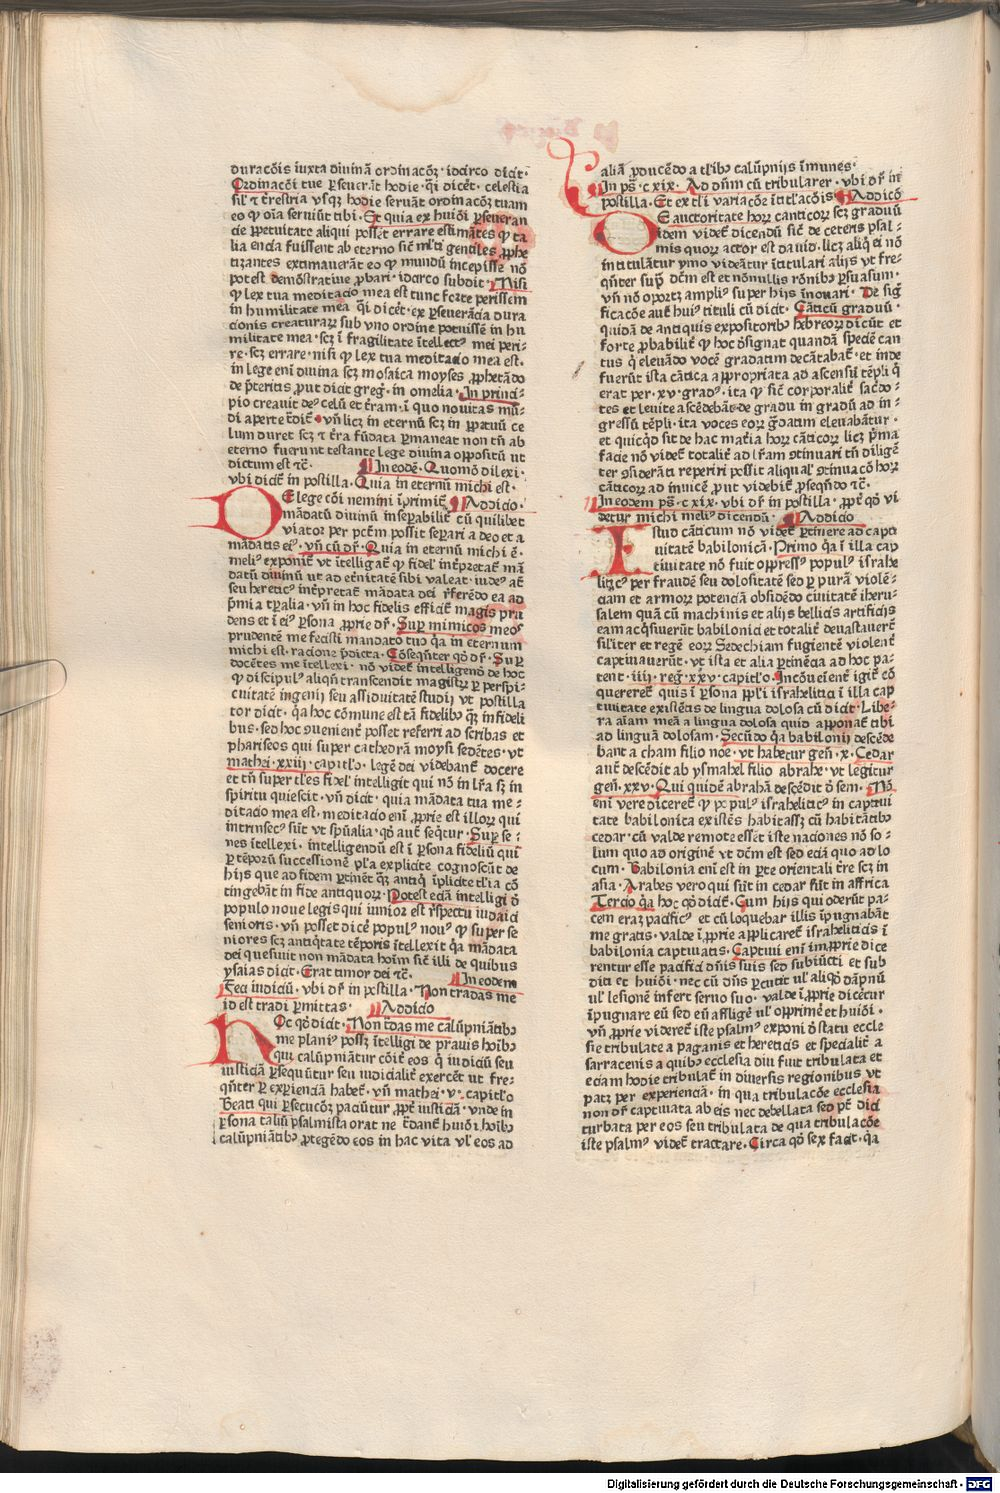 duracõis iuxta diuinã ordinacõȝ · idcirco dicit ·
Ordinacõi tue ꝑseuerãt hodie · q̃i dicẽt · celestia
sil' ⁊ t̃restria vsqȝ hodie seruãt ordinacõȝ tuam
eo ꝙ oĩa seruiũt tibi · Et quia ex huiõi ꝑseueran
cie ꝑpetuitate aliqui possẽt errare estimãtes ꝙ ta
lia encia fuissent ab eterno sic̃ ml'ti gentiles ꝓphe
tizantes extimauerãt eo ꝙ mundũ incepisse nõ
potest demõstratiue ꝓbari · idcirco subdit · Nisi
ꝙ lex tua meditacio mea est tunc forte perissem
in humilitate mea q̃i dicẽt · ex ꝑseuerãcia dura
cionis creaturaꝝ sub vno ordine potuissẽ in hu
militate mea · scȝ ĩ fragilitate ĩtellectꝰ mei peri-
re · scȝ errare · nisi ꝙ lex tua meditacio mea est ·
in lege eni diuina scȝ mosaica moyses ꝓphetãdo
de p̃teritis ꝓut dicit greg̃ · in omelia · In princi-
pio creauit deꝰ celũ et t̃ram · ĩ quo nouitas mũ-
di aperte t̃dit̃ · vñ licȝ in eternũ scȝ in ꝑpetuũ ce
lum duret scȝ ⁊ t̃ra fũdata ꝑmaneat non tñ ab
eterno fuerunt testante lege diuina oppositũ ut
dictum est ⁊c̃ · In eodẽ · Quomõ dilexi ·
vbi dicit̃ in postilla · Quia in eternũ michi est ·
De lege cõi nemini ĩprimit̃ · Addicio ·
mãdatũ diuinũ inseꝑabilit̃ cũ quilibet
viator per pctm̃ possit seꝑari a deo et a
mãdatis eiꝰ · vñ cũ dr̃ · Quia in eternũ michi ẽ ·
meliꝰ exponit̃ vt ĩtelligat̃ ꝙ fidel' int̃pretat̃ mã
datũ diuinũ ut ad et̃nitatẽ sibi valeat · iudeꝰ aũt
seu hereticꝰ int̃pretat̃ mãdata dei r̃ferẽdo ea ad
p̃mia tꝑalia · vñ in hoc fidelis efficit̃ magis pru
dens et ĩ eiꝰ ꝑsona ꝓprie dr̃ · Suꝑ inimicos meos
prudentẽ me fecisti mandato tuo q̃a in eternum
michi est · racione p̃dicta · Cõseqñter qõ dr̃ · Suꝑ
docẽtes me ĩtellexi · nõ videt̃ intelligendũ de hoc
ꝙ discipulꝰ aliqñ transcendit magistrȝ ꝑ perspi-
cuitatẽ ingenij seu assiduitatẽ studij vt postilla
tor dicit · q̃a hoc cõmune est tã fidelibꝰ qȝ infideli
bus · sed hoc ↄuenient̃ posset referri ad scribas et
phariseos qui super cathedrã moysi sedẽtes · vt
mathei · xxiij · capitl'o · legẽ dei videbant̃ docere
et tñ super tl'es fidel' intelligit qui nõ in lr̃a sȝ in
spiritu quiescit · vñ dicit · quia mãdata tua me-
ditacio mea est · meditacio eni ꝓprie est illoꝝ qui
intrinsecꝰ siũt vt spũalia · qõ aũt seqt̃ur · Suꝑ se-
nes ĩtellexi · intelligendũ est ĩ ꝑsona fideliũ qui
ꝑ tẽporũ successionẽ vl'a explicite cognoscũt de
hijs que ad fidem ꝑtinẽt qȝ antiq̃ ĩplicite tl'ia cõ
tingebãt in fide antiquoꝝ · Potest eciã intelligi õ
populo noue legis qui iunior est r̃spectu iudaici
senioris · vñ posset dicẽ populꝰ nouꝰ ꝙ super se
niores scȝ antiq̃tate tẽporis ĩtellexit q̃a mãdata
dei quesiuit non mãdata hoĩm sic̃ illi de quibus
ysaias dicit · Erat timor dei ⁊c̃ · In eodem
Feci iudiciũ · vbi dr̃ in postilla · Non tradas me
id est tradi ꝑmittas · Addicio
Hoc qõ dicit · Non t̃das me calũpniãtibꝰ
me planiꝰ possȝ ĩtelligi de prauis hoĩbꝰ
qui calũpniãtur cõit̃ eos q̃ iudiciũ seu
iusticiã ꝑsequũtur seu iudicialit̃ exercẽt ut fre-
qñter ꝑ exꝑienciã habet̃ · vñ mathei · v · capitl'o
Beati qui ꝑsecucõȝ paciũtur ꝓpt̃ iusticiã · vnde in
ꝑsona taliũ psalmista orat ne t̃dant̃ huiõi hoĩbꝰ
calũpniãtibꝰ ꝓtegẽdo eos in hac vita vl' eos ad
aliã ꝓducẽdo a tl'ibꝰ calũpnijs ĩmunes ·
In ps̃ · cxix · Ad dñm cũ tribularer · vbi dr̃ in
postilla · Et ex tl'i variacõe ĩtitl'acõis · Addicõ
De auctoritate hoꝝ canticoꝝ scȝ graduũ
idem videt̃ dicendũ sic̃ de ceteris psal-
mis quoꝝ actor est dauid · licȝ aliq̃ ei nõ
intitulãtur ymo videãtur ĩtitulari alijs vt fre-
qñter sup̃ dc̃m est et nõnullis rõnibꝰ ꝑsuasum ·
vñ nõ oportȝ ampliꝰ super hijs ĩnouari · De sig̃
ficacõe aut̃ huiꝰ tituli cũ dicit · Cãticũ graduũ ·
quidã de antiquis expositoribꝰ hebreoꝝ dicũt et
forte ꝓbabilit̃ ꝙ hoc õsignat quandã speciẽ can
tus q̃ eleuãdo vocẽ gradatim decãtabat̃ · et inde
fuerũt ista cãtica appropriata ad ascensũ tẽpli q̃
erat per · xv · gradꝰ · ita ꝙ sic̃ corporalit̃ sac̃do-
tes et leuite ascẽdebãt de gradu in gradũ ad in-
gressũ tẽpli · ita voces eoꝝ g̃datim eleuabãtur ·
et quicqd sit de hac mat̃ia hoꝝ cãticoꝝ licȝ p̃ma
facie nõ videt̃ totalit̃ ad lr̃am ↄtinuari tñ diligẽ
ter ↄsiderãti reperiri possit aliqual' ↄtinuacõ hoꝝ
cãticoꝝ ad inuicẽ ꝓut videbit̃ ꝓseqñdo ⁊c̃ ·
In eodem ps̃ · cxix · vbi dr̃ in postilla · ꝓpt̃ qõ vi
detur michi meliꝰ dicendũ · Addicio
Istud cãticum nõ videt̃ ꝑtinere ad capti
uitatẽ babilonicã · Primo q̃a ĩ illa cap
tiuitate nõ fuit oppressꝰ populꝰ israhe
litycꝰ per fraudẽ seu dolositatẽ sed ꝑ purã violẽ-
ciam et armoꝝ potenciã obsidẽdo ciuitatẽ iheru-
salem quã cũ machinis et alijs bellicis artificijs
eam acq̃siuerũt babilonici et totalit̃ deuastauerũt
sil'iter et regẽ eoꝝ Sedechiam fugientẽ violent̃
captiuauerũt · vt ista et alia ꝑtinẽcia ad hoc pa-
tent · iiij · reg̃ · xxv · capitl'o · Incõueient̃ igit̃ cõ
quereret̃ quis ĩ ꝑsona ppl'i israhelitici ĩ illa cap
tiuitate existẽtis de lingua dolosa cũ dicit · Libe-
ra aĩam meã a lingua dolosa quid apponat̃ tibi
ad linguã dolosam · Secũdo q̃a babilonij descẽde
bant a cham filio noe · vt habetur geñ · x · Cedar
aut̃ descẽdit ab ysmahel filio abrahe · vt legitur
geñ · xxv · Qui quidẽ abrahã descẽdit õ sem · Nõ
eni vere diceret̃ ꝙ populꝰ israheliticꝰ in captiui
tate babilonica existẽs habitassȝ cũ habitãtibꝰ
cedar · cũ valde remote essẽt iste naciones nõ so-
lum quo ad originẽ vt dc̃m est sed eciã quo ad lo
cum · Babilonia eni est in ꝑte orientali t̃re scȝ in
asia · Arabes vero qui siũt in cedar siũt in affrica
Tercio q̃a hoc qõ dicit̃ · Cum hijs qui oderũt pa-
cem eraȝ pacificꝰ et cũ loquebar illis ĩpugnabãt
me gratis · valde ĩꝓprie applicaret̃ israheliticis ĩ
babilonia captiuatis · Captiui eni imꝓprie dice
rentur esse pacifici dñis suis sed subiũcti et sub
diti et huiõi · nec cũ dñs ꝑcutit ul' aliqõ dãpnũ
ul' lesionẽ infert seruo suo · valde ĩꝓprie dicẽtur
ĩpugnare eũ sed eũ affligẽ ul' opprimẽ et huiõi ·
vñ ꝓprie videret̃ iste psalmꝰ exponi õ statu eccle
sie tribulate a paganis et hereticis et specialit̃ a
sarracenis a quibꝰ ecclesia diu fuit tribulata et
eciam hodie tribulat̃ in diuersis regionibus vt
patȝ per experienciã · in qua tribulacõe ecclesia
non dr̃ captiuata ab eis nec debellata sed pt̃ dici
turbata per eos seu tribulata de qua tribulacõe
iste psalmꝰ videt̃ tractare · Circa qõ sex facit · q̃a
Digitalisierung gefördert durch die Deutsche Forschungsgemeinschaft - DFG